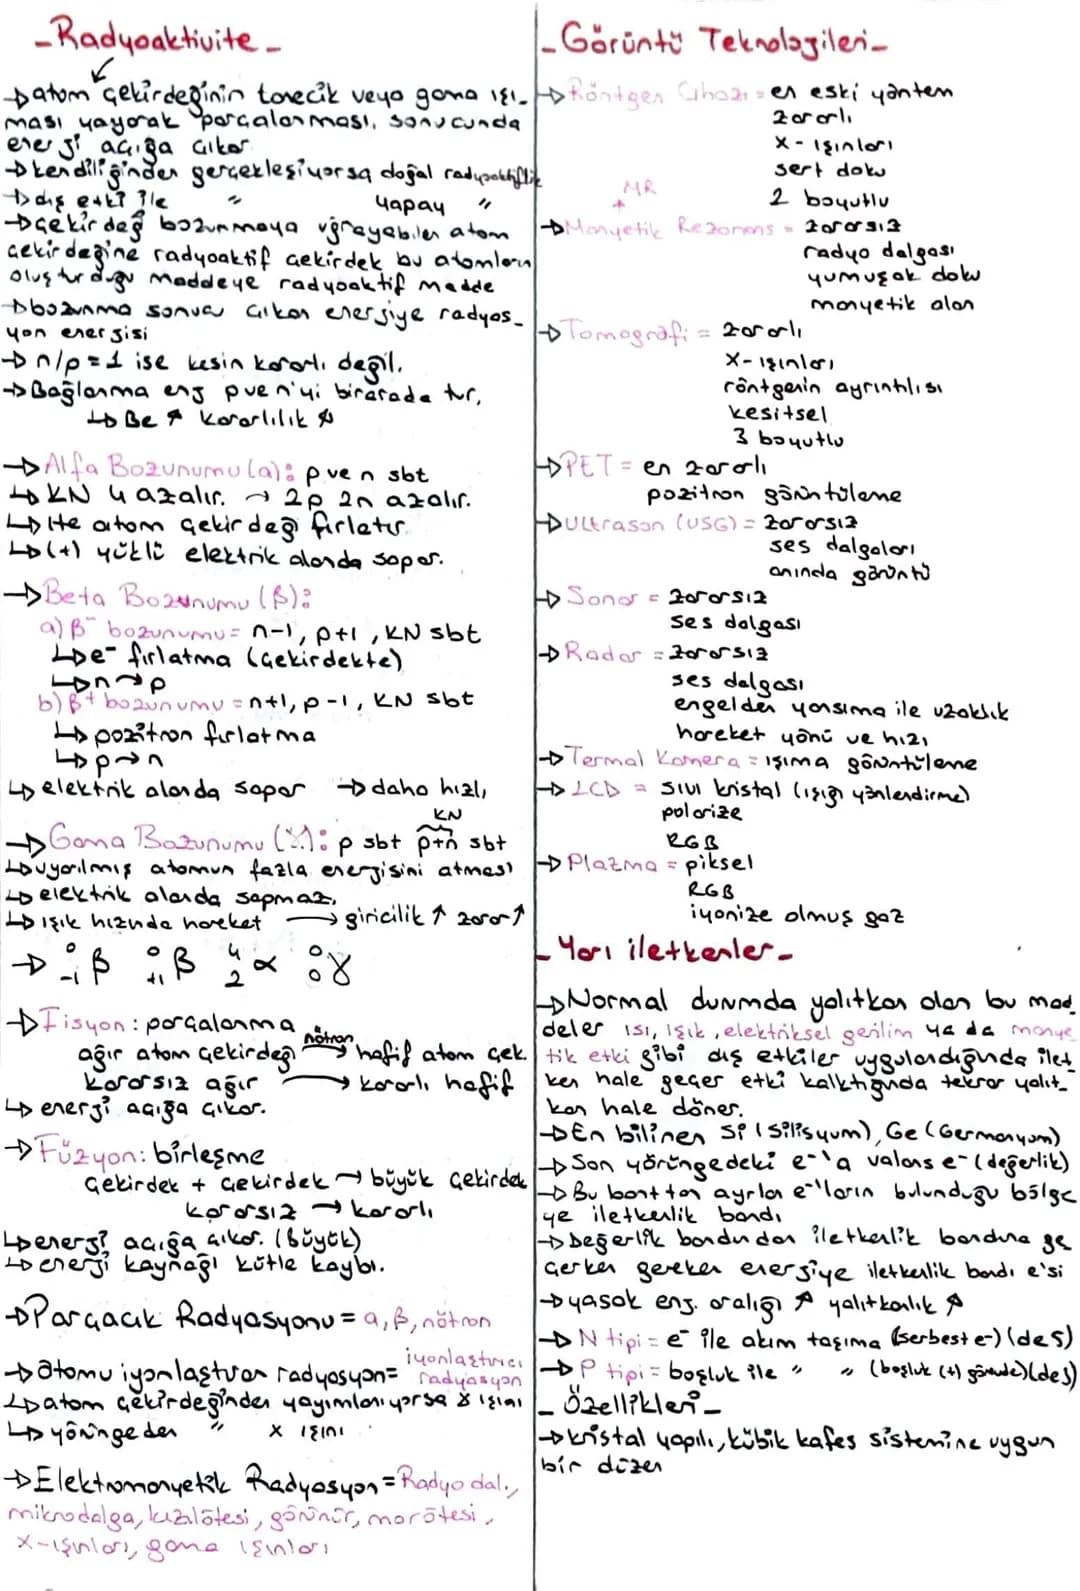 -Radyoaktivite-
→atom çekirdeğinin tanecik veya gama ışı-
ması yayarak parçalanması, sonucunda
enerji açığa çıkar
→kendiliğinden gerçekleşiyorsa doğal radyoaktiflik
→dış etki ile " yapay "
→çekirdeğ bozunmaya uğrayabilen atom
çekirdeğine radyoaktif çekirdek bu atomların
oluşturduğu maddeye radyoaktif madde
→bozunma sonucu çıkan enerjiye radyas-
yon enerjisi
→n/p=1 ise kesin kararlı değil.
→Bağlanma enj p ve n'yi birarada tur,
↳Be ↑ kararlılık ↑
→Alfa Bozunumu(α): p ve n sbt
↳KN 4 azalır. → 2p 2n azalır.
↳He atom çekirdeğ fırlatır.
↳(+) yüklü elektrik alanda sapar.
→Beta Bozunumu (β):
a)β⁻ bozunumu= n-1, p+1, KN sbt
↳e⁻ fırlatma (çekirdekte)
↳n→p
b)β⁺ bozunumu =n+1, p-1, KN sbt
↳pozitron fırlatma
↳p→n
↳elektrik alanda sapar →daha hızlı
KN
→Gama Bozunumu (γ): p sbt p+n sbt
↳uyarılmış atomun fazla enerjisini atması
↳elektrik alanda sapmaz,
↳ışık hızında hareket → giricilik ↑ zarar↑
→ ⁰₋₁β ⁰₊₁β ⁴₂α ⁰₀γ
→Fisyon: parçalanma
ağır atom çekirdeği nötron→ hafif atom çek.
kararsız ağır → kararlı hafif
↳enerji açığa çıkar.
→Füzyon: birleşme
çekirdek + çekirdek → büyük çekirdek
kararsız → kararlı
↳enerji açığa çıkar. (büyük)
↳enerji kaynağı kütle kaybı.
→Parçacık Radyasyonu= α, β, nötron
→Atomu iyonlaştıran radyasyon= iyonlaştırıcı radyasyon
↳atom çekirdeğinden yayımlanıyorsa γ ışını
↳yörüngeden " x ışını
→Elektromanyetik Radyasyon=Radyo dal.,
mikrodalga, kızılötesi, görünür, morötesi,
x-ışınları, gama ışınları
-Görüntü Teknolojileri-
→Röntgen Cihazı = en eski yöntem
zararlı
x-ışınları
sert doku
2 boyutlu
MR
→Manyetik Rezonans = zararsız
radyo dalgası
yumuşak doku
manyetik alan
→Tomografi = zararlı
x-ışınları
röntgenin ayrıntılısı
kesitsel
3 boyutlu
→PET = en zararlı
pozitron görüntüleme
→Ultrason (USG) = zararsız
ses dalgaları
anında görüntü
→Sonar = zararsız
ses dalgası
→Radar = zararsız
ses dalgası
engelden yansıma ile uzaklık
hareket yönü ve hızı
→Termal Kamera = ışıma görüntüleme
→LCD = sıvı kristal (ışığı yönlendirme)
polarize
RGB
→Plazma = piksel
RGB
iyonize olmuş gaz
-Yarı iletkenler-
→Normal durumda yalıtkan olan bu mad-
deler ısı, ışık, elektriksel gerilim ya da manye
tik etki gibi dış etkiler uygulandığında ilet-
ken hale geçer etki kalktığında tekrar yalıt-
kan hale döner.
→En bilinen Si (Silisyum), Ge (Germanyum)
→Son yörüngedeki e⁻'a valans e⁻(değerlik)
→Bu banttan ayrılan e⁻'ların bulunduğu bölge
ye iletkenlik bandı
→Değerlik bandından iletkenlik bandına ge
çerken gereken enerjiye iletkenlik bandı e'si
→yasak enj. aralığı ↑ yalıtkanlık ↑
→N tipi = e⁻ ile akım taşıma (serbest e⁻) (des)
→P tipi = boşluk ile " " (boşluk (+) görevde)(des)
-Özellikleri-
→kristal yapılı, kübik kafes sistemine uygun
bir düzen